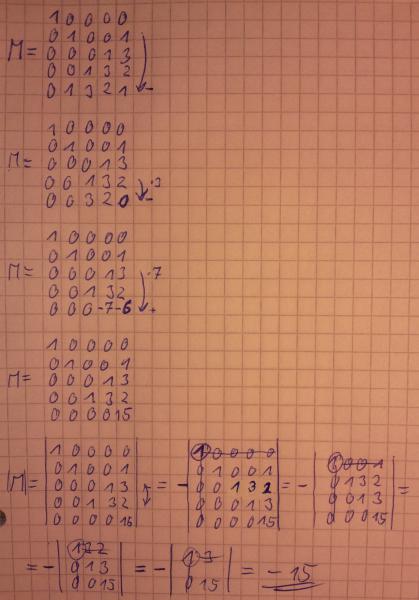 1 0 0 0 0
0 1 0 0 1
M = 0 0 0 1 3
0 0 1 3 2
0 1 3 2 1 -
1 0 0 0 0
0 1 0 0 1
M = 0 0 0 1 3
0 0 1 3 2 ·3
0 0 3 2 0 -
1 0 0 0 0
0 1 0 0 1
M = 0 0 0 1 3 ·7
0 0 1 3 2
0 0 0 -7 -6 +
1 0 0 0 0
0 1 0 0 1
M = 0 0 0 1 3
0 0 1 3 2
0 0 0 0 15
1 0 0 0 0 1 0 0 0 0
0 1 0 0 1 0 1 0 0 1 1 0 0 1
|M| = 0 0 0 1 3 = - 0 0 1 3 2 = - 0 1 3 2 =
0 0 1 3 2 0 0 0 1 3 0 0 1 3
0 0 0 0 15 0 0 0 0 15 0 0 0 15
1 3 2 1 3
= - 0 1 3 = - 0 15 = - 15
0 0 15